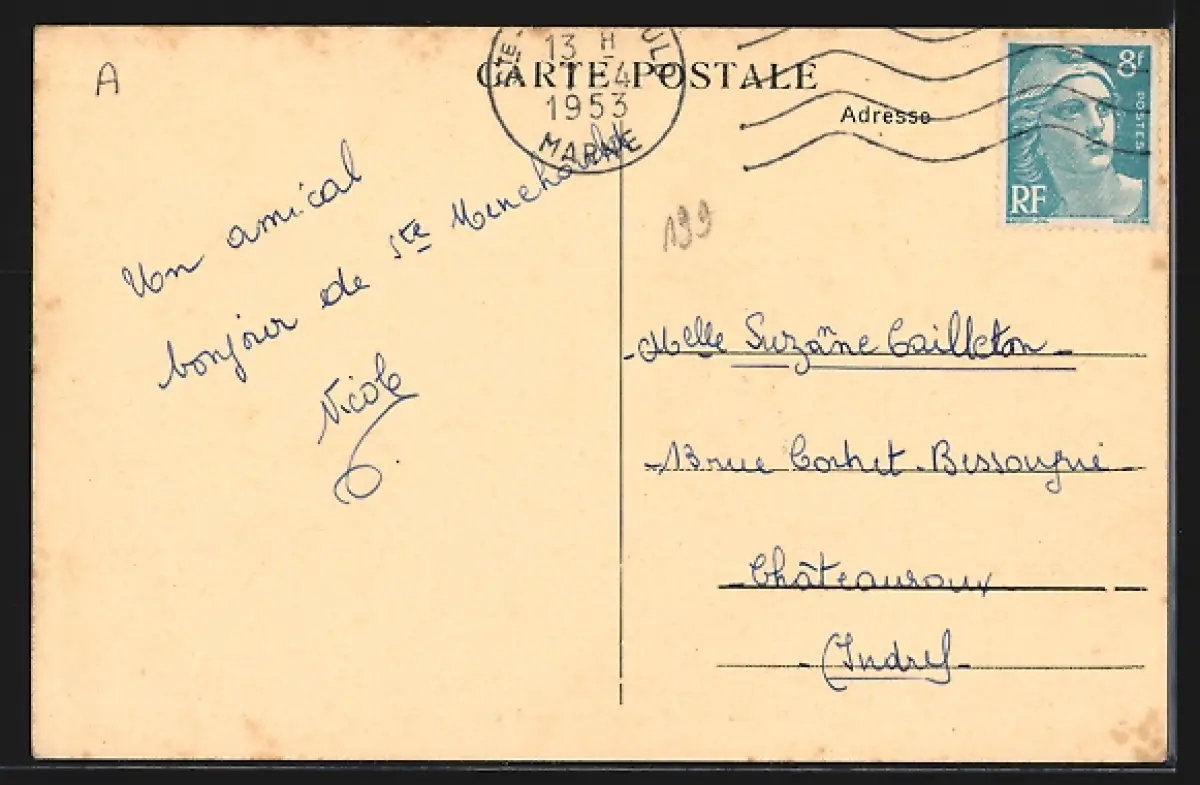 A
CARTE POSTALE
Adresse
13 H
4
1953
MARNE
8F
POSTES
RF
199
Un amical
bonjour de Ste Menehould
Nicole
Melle Suzanne Cailleton
13 rue Corbet
Châteauroux
(Indre)